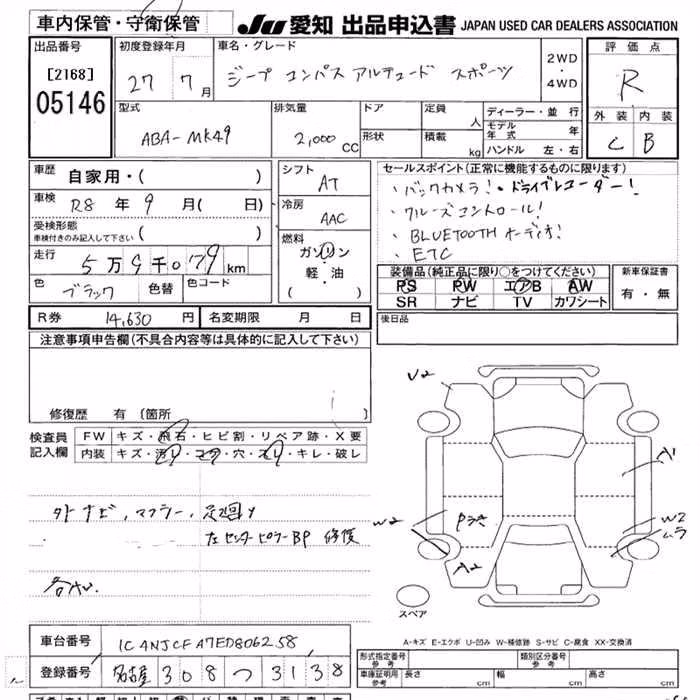 車内保管・守衛保管
JU 愛知 出品申込書 JAPAN USED CAR DEALERS ASSOCIATION
出品番号 初度登録年月 車名・グレード 2WD・4WD 評価点
[2168] 05146 27 7月 ジープ コンパス スポーツ R
型式 排気量 ドア 定員 人 ディーラー・並行 外装 内装
ABA-MK49 2,000 CC 形状 積載 kg モデル年式 年 C B
ハンドル 左・右
車歴 自家用・( ) シフト AT セールスポイント(正常に機能するものに限ります)
車検 R8 年 9 月( 日) 冷房 AAC ・バックカメラ!・ドライブレコーダー!
受検形態 車検付きのみ記入して下さい ( ) ・クルーズコントロール!
走行 5万9千079km 燃料 ガソリン ・BLUETOOTHオーディオ!
軽・油 ( ) ・ETC
色 ブラック 色替 色コード
装備品(純正品に限り○をつけてください) 新車保証書
PS PW エアB AW 有・無
SR ナビ TV カワシート
R券 14,630 円 名変期限 月 日 後日品
注意事項申告欄(不具合内容等は具体的に記入して下さい)
修復歴 有 (箇所 )
検査員記入欄 FW キズ・飛石・ヒビ割・リペア跡・X要
内装 キズ・汚れ・コゲ・穴・スレ・キレ・破レ
U2
A1
W2 W2
ムラ
A2
外ナビ、マフラー、足廻り
左センターピラーBP 修復
スペア
車台番号 1C4NJCFA7ED806258
A-キズ E-エクボ U-凹み W-補修跡 S-サビ C-腐食 XX-交換済
登録番号 名古屋 308 つ 3138
形式指定番号 参考 類別区分番号 参考
車庫証明用 参考 長さ cm 幅 cm 高さ cm